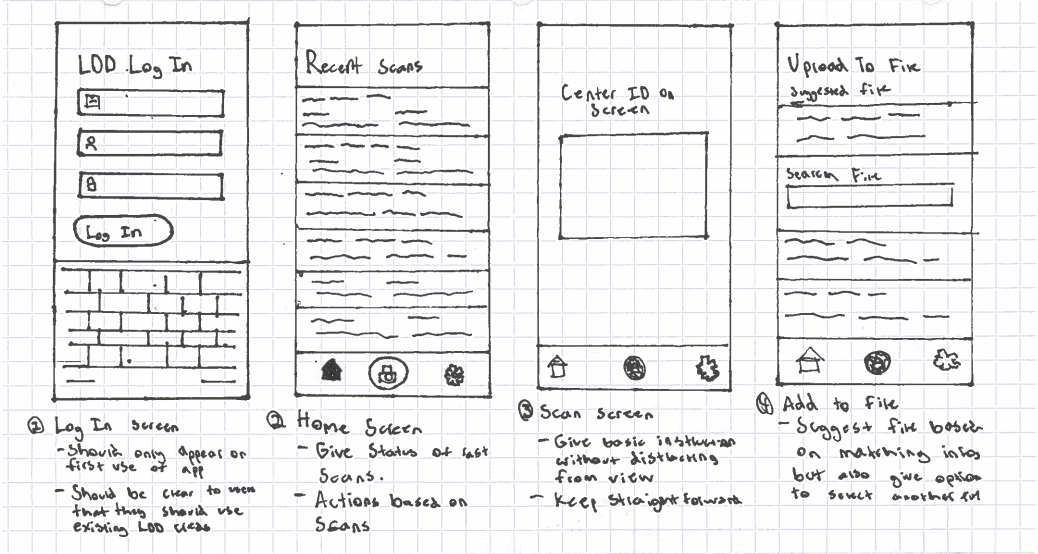 LOD Log In
Log In
① Log In screen
- Should only appear on first use of app
- Should be clear to users that they should use existing LOD creds
Recent Scans
② Home Screen
- Give Status of last Scans.
- Actions based on Scans
Center ID on
Screen
③ Scan screen
- Give basic instruction
without distracting
from view
- Keep straightforward
Upload To File
Suggested file
Search File
④ Add to file
- Suggest file based
on matching info,
but also give option
to select another file